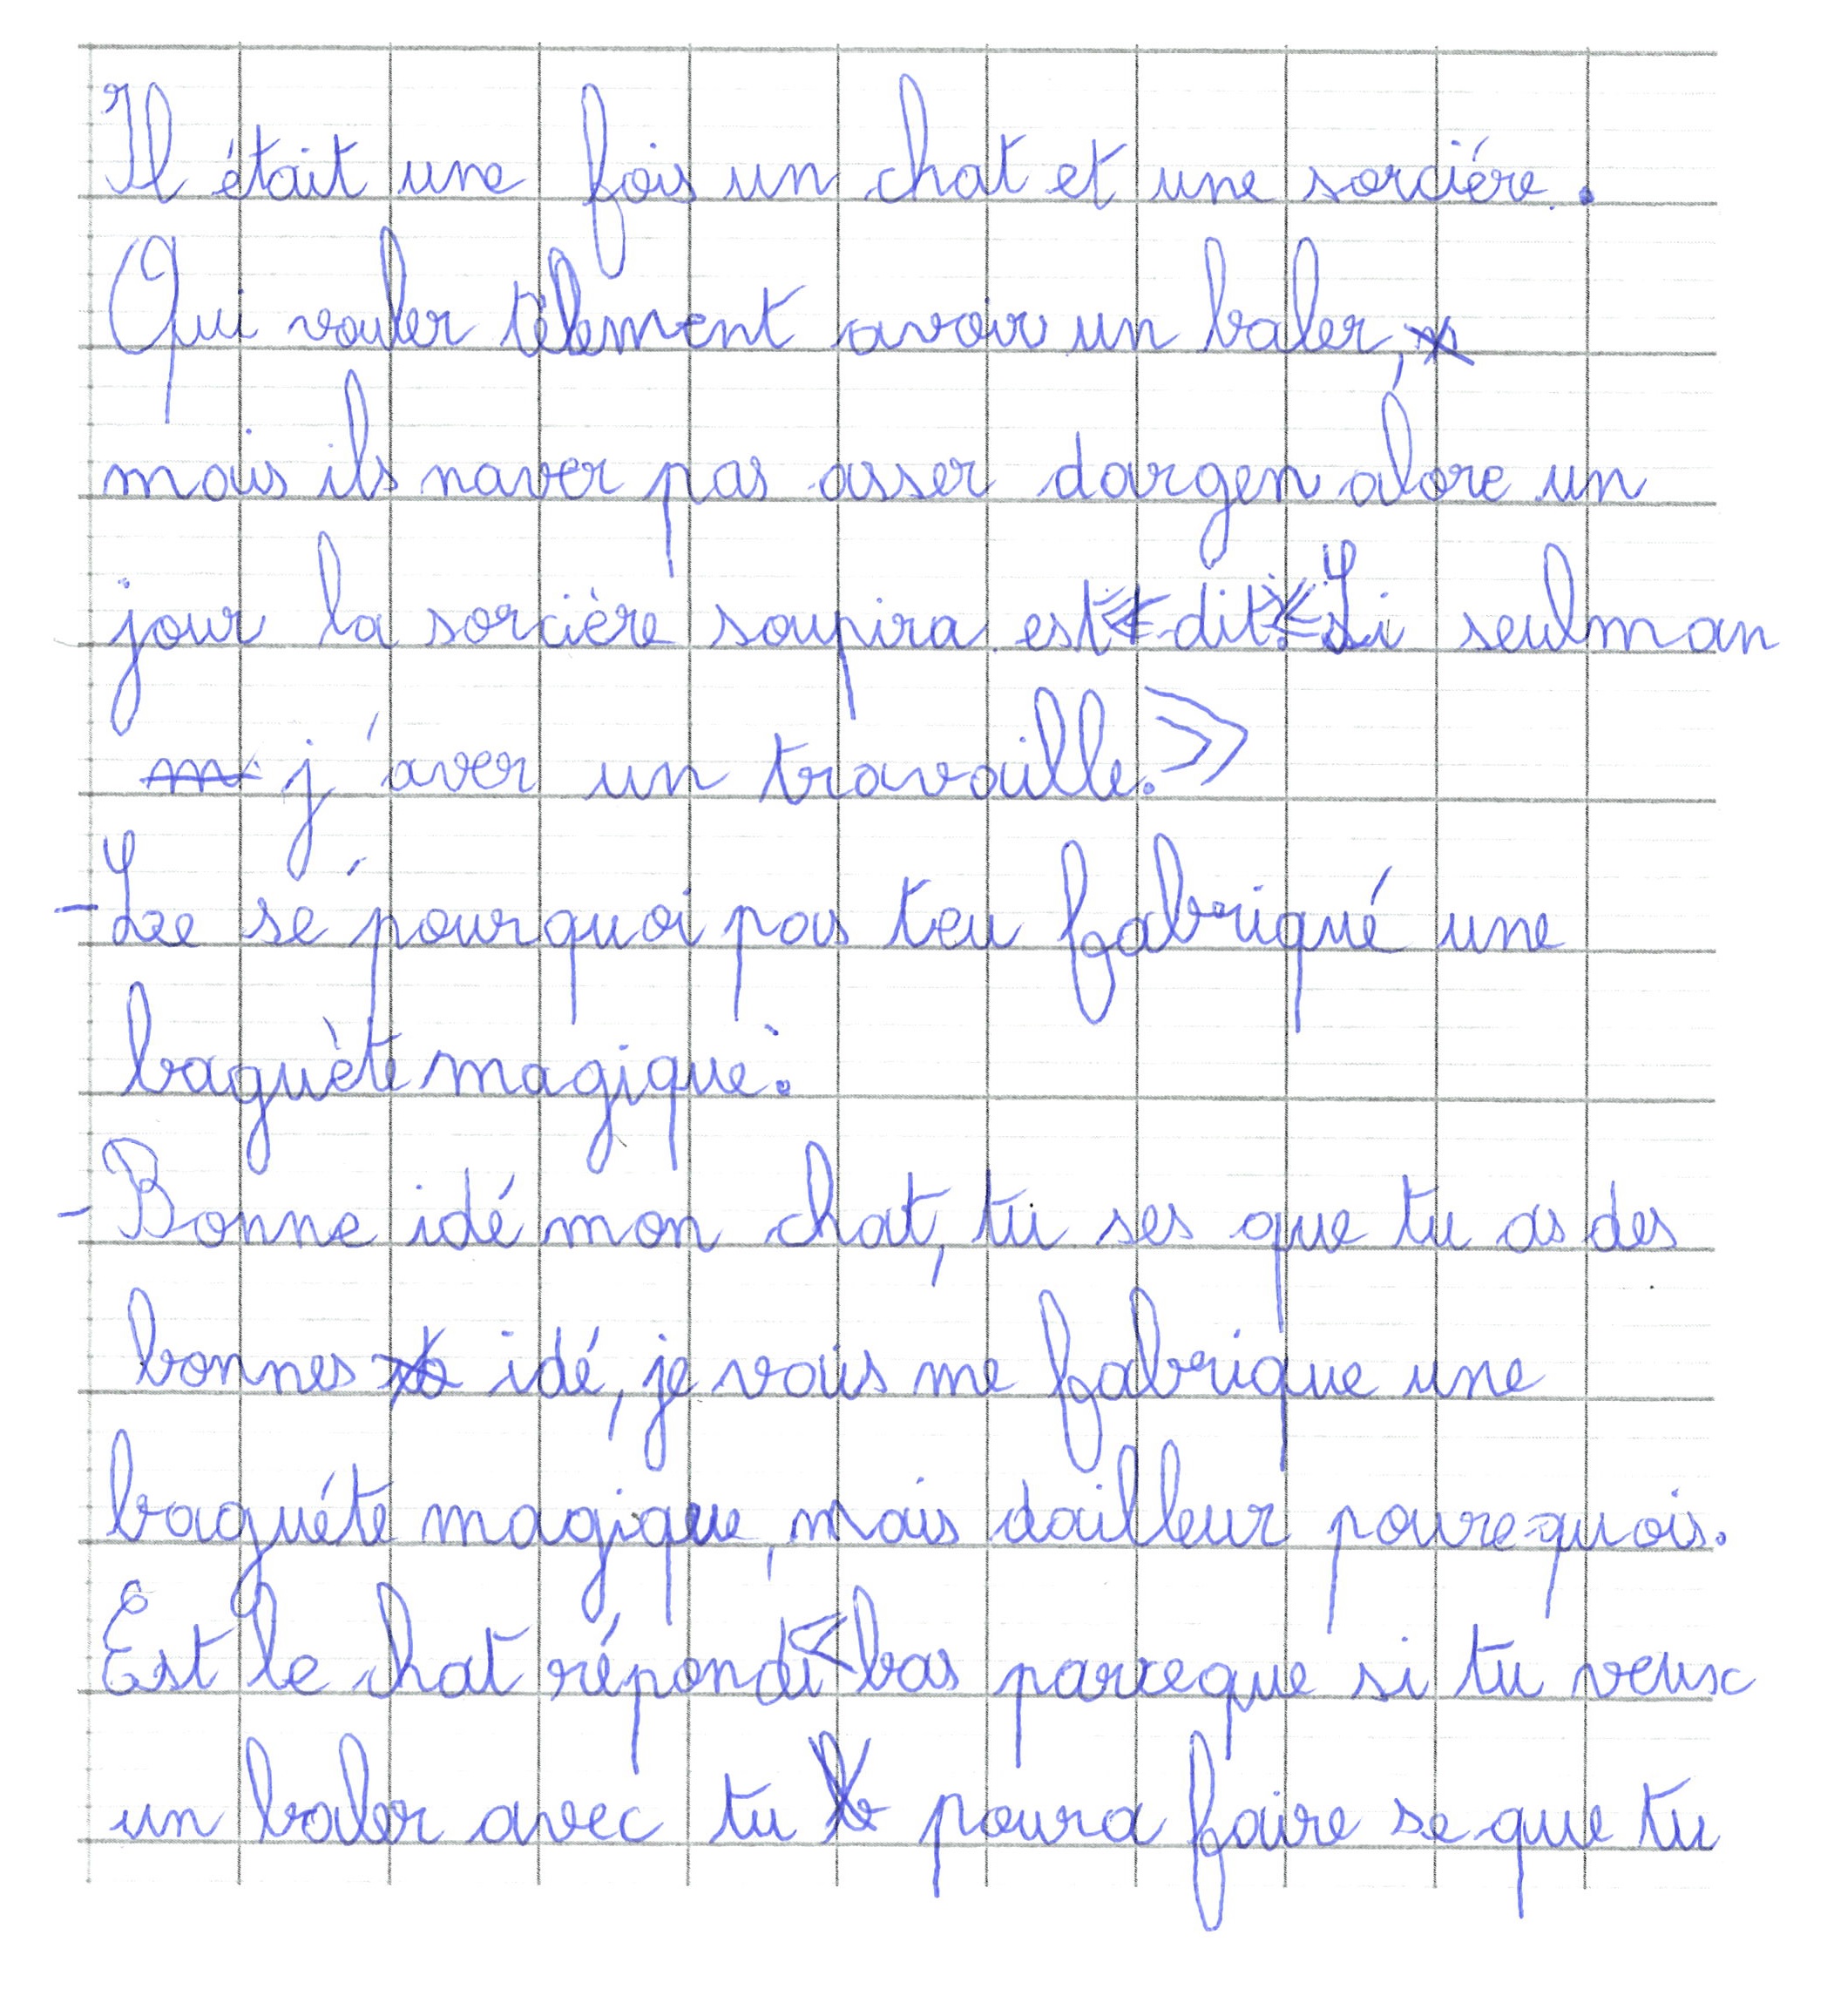 Il était une fois un chat et une sorciére.
Qui vouler télement avoir un baler,
mais ils naver pas asser dargen alore un
jour la sorcière soupira est dit : « Si seulman
j'aver un travaille. »
- See sé pourquoi pas teu fabriqué une
baguète magique.
- Bonne idé mon chat, tu ses que tu as des
bonnes idé, je vais me fabrique une
baguéte magique, mais dailleur pourequois.
Est le chat répondi < bas parceque si tu veux
un baler avec tu poura faire se que tu